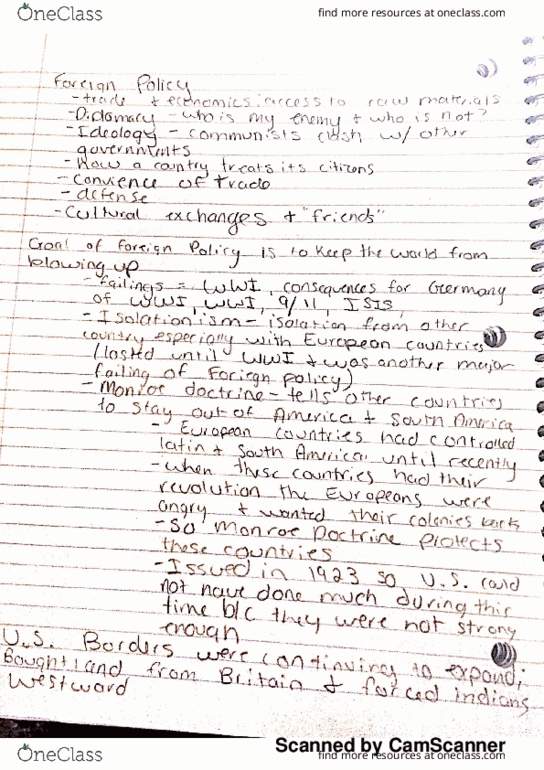 OneClass
find more resources at oneclass.com
Foreign Policy
- trade + economics: access to raw materials
- Diplomacy - who is my enemy + who is not?
- Ideology - communists clash w/ other
governments
- How a country treats its citizens
- Convience of trade
- defense
- Cultural exchanges + "friends"
Goal of Foreign Policy is to keep the world from
blowing up
- failings = WWI, consequences for Germany
of WWI, WWI, 9/11, ISIS,
- Isolationism - isolation from other
country especially with European countries
(lasted until WWI + was another major
failing of Foriegn policy)
- Monroe doctrine - tells other countries
to stay out of America + South America
- European countries had controlled
latin + South America, until recently
- when these countries had their
revolution the Europeans were
angry + wanted their colonies back
- So Monroe Doctrine protects
these countries
- Issued in 1923 so U.S. could
not have done much during this
time b/c they were not strong
enough
U.S. Borders were continuing to expand;
Bought land from Britain + forced indians
westward
Scanned by CamScanner
OneClass
find more resources at oneclass.com